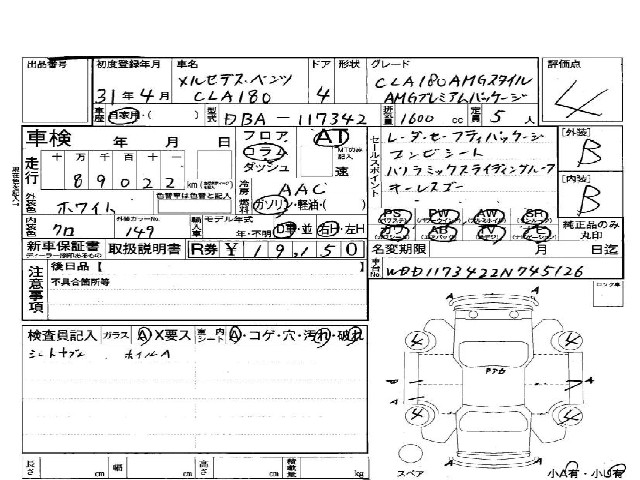 出品番号 初度登録年月 車名 ドア 形状 グレード 評価点
31年4月 メルセデス・ベンツ CLA180 4 CLA180 AMGスタイル AMGプレミアムパッケージ 4
車歴 自家用・( ) 型式 DBA-117342 排気量 1600 cc 定員 5 人
車検 年 月 日 フロア コラム ダッシュ AT MTのみ記入 速
セールスポイント レーダーセーフティパッケージ
コンビシート
パノラミックスライディングルーフ
キーレスゴー
[外装] B
[内装] B
走行 十万千百十 89022 km
冷房 AAC
燃料 ガソリン・軽油・( )
外装色 ホワイト 色替車は色替と記入
内装色 クロ 外装カラーNo. 149 輸入車 モデル年式 年・不明 D車・並 右H・左H
PS PW AW SR
カワ AB TV ナビ
純正品のみ丸印
新車保証書 取扱説明書 R券 ¥ 19,150
名変期限 月 日迄
車台No. WDD1173422N745126
注意事項 後日品【 】
不具合箇所等
ロック車
検査員記入 ガラス A X要ス 車内シート A・コゲ・穴・汚れ・破れ
シートナブレ ホイルA
4 4
A
B A
A
4 4
A A
スペア
長さ cm 幅 cm 高さ cm 積載量 kg
小A有・小U有